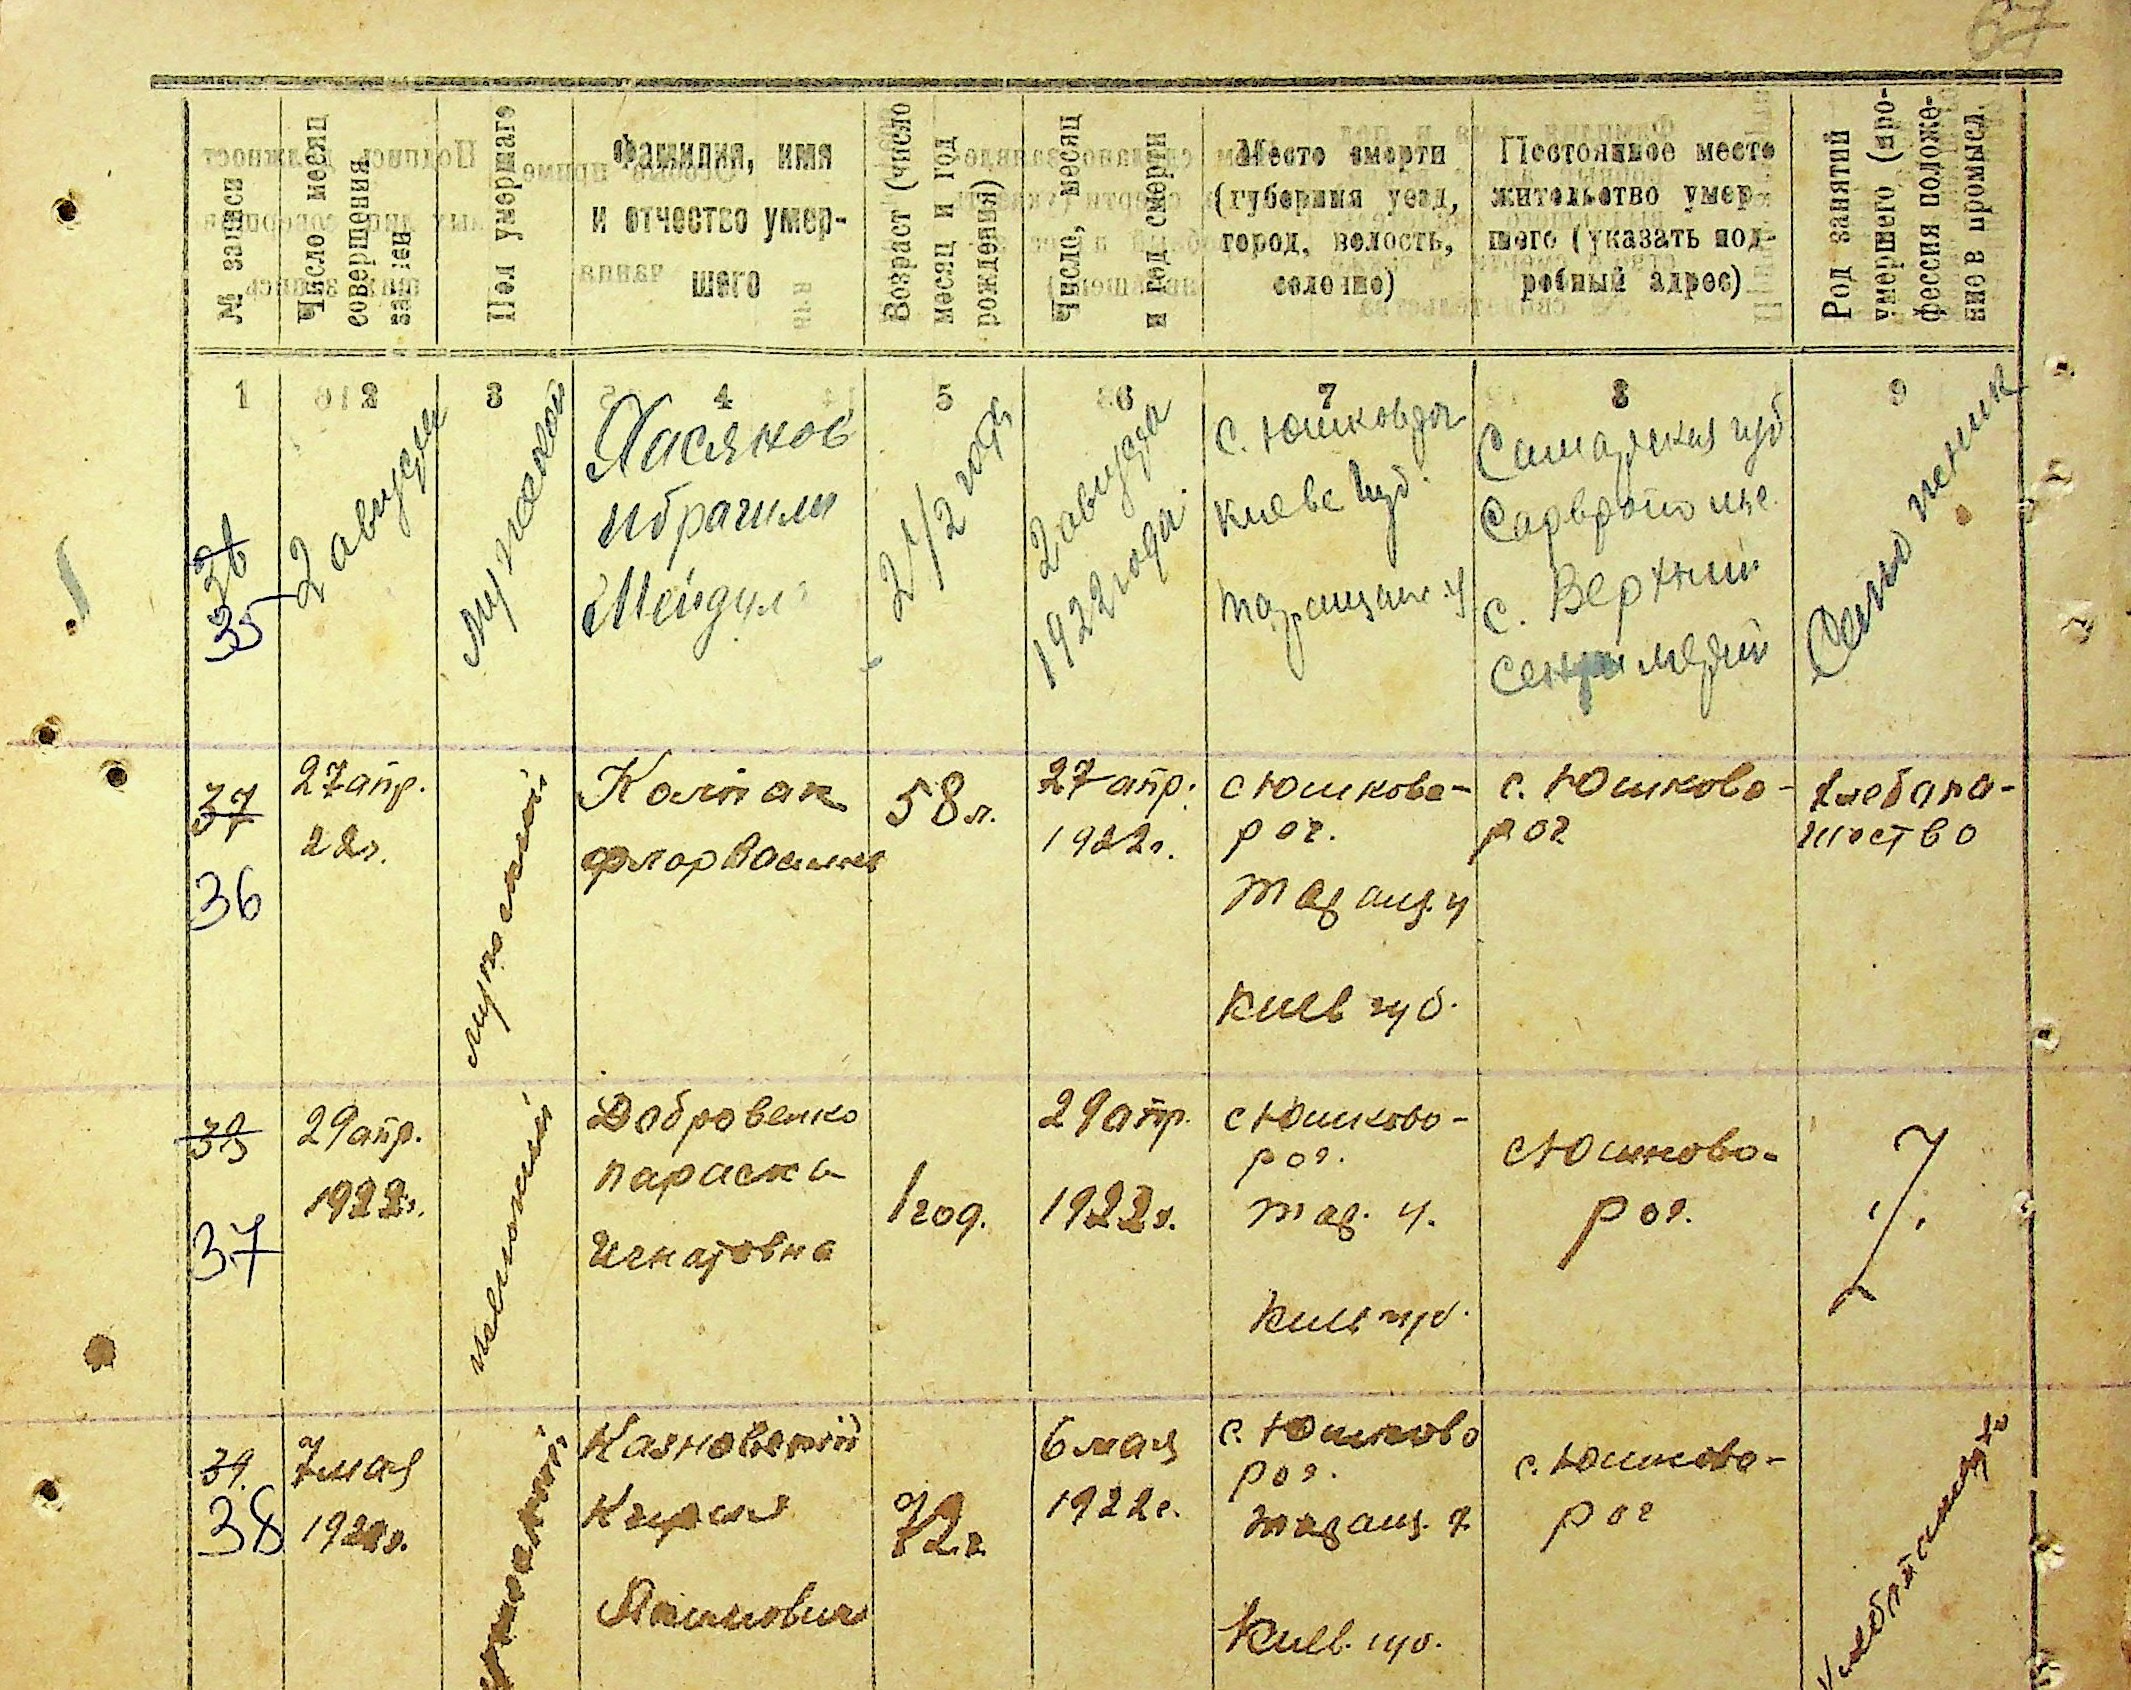 67
№ записи
Число месяц
совершения
записи
Пол умершаго
Фамилия, имя
и отчество умер-
шего
Возраст (число
месяц и год
рождения)
Число, месяц
и год смерти
Место смерти
(губерния уезд,
город, волость,
селение)
Постоянное место
жительство умер
шего (указать под-
робный адрес)
Род занятий
умершего (про-
фессия положе-
ние в промысл.
1 2 3 4 5 6 7 8 9
36
35
2 августа
мужской
Хасянов
Ибрагим
2 1/2 года
2 августа
1922 года
с. Юшков рог
Киевс губ.
Таращан. у
Самарская губ
с. Верхний
37
36
27 апр.
22г.
мужеский
Колпак
Флор Васильев
58 л.
27 апр.
1922г.
с Юшкова-
рог.
Таращ. у
Киев губ.
с. Юшково-
рог
хлебопа-
шество
38
37
29 апр.
1922г.
женский
Добровенко
Параска
Игнатовна
1 год.
29 апр.
1922г.
с Юшково-
рог.
Тар. у.
Киев губ.
с Юшково-
рог.
39.
38
7 мая
1922г.
Кирил
72 г.
6 мая
1922г.
с. Юшково
рог.
Таращ. у
Киев. губ.
с. Юшково-
рог